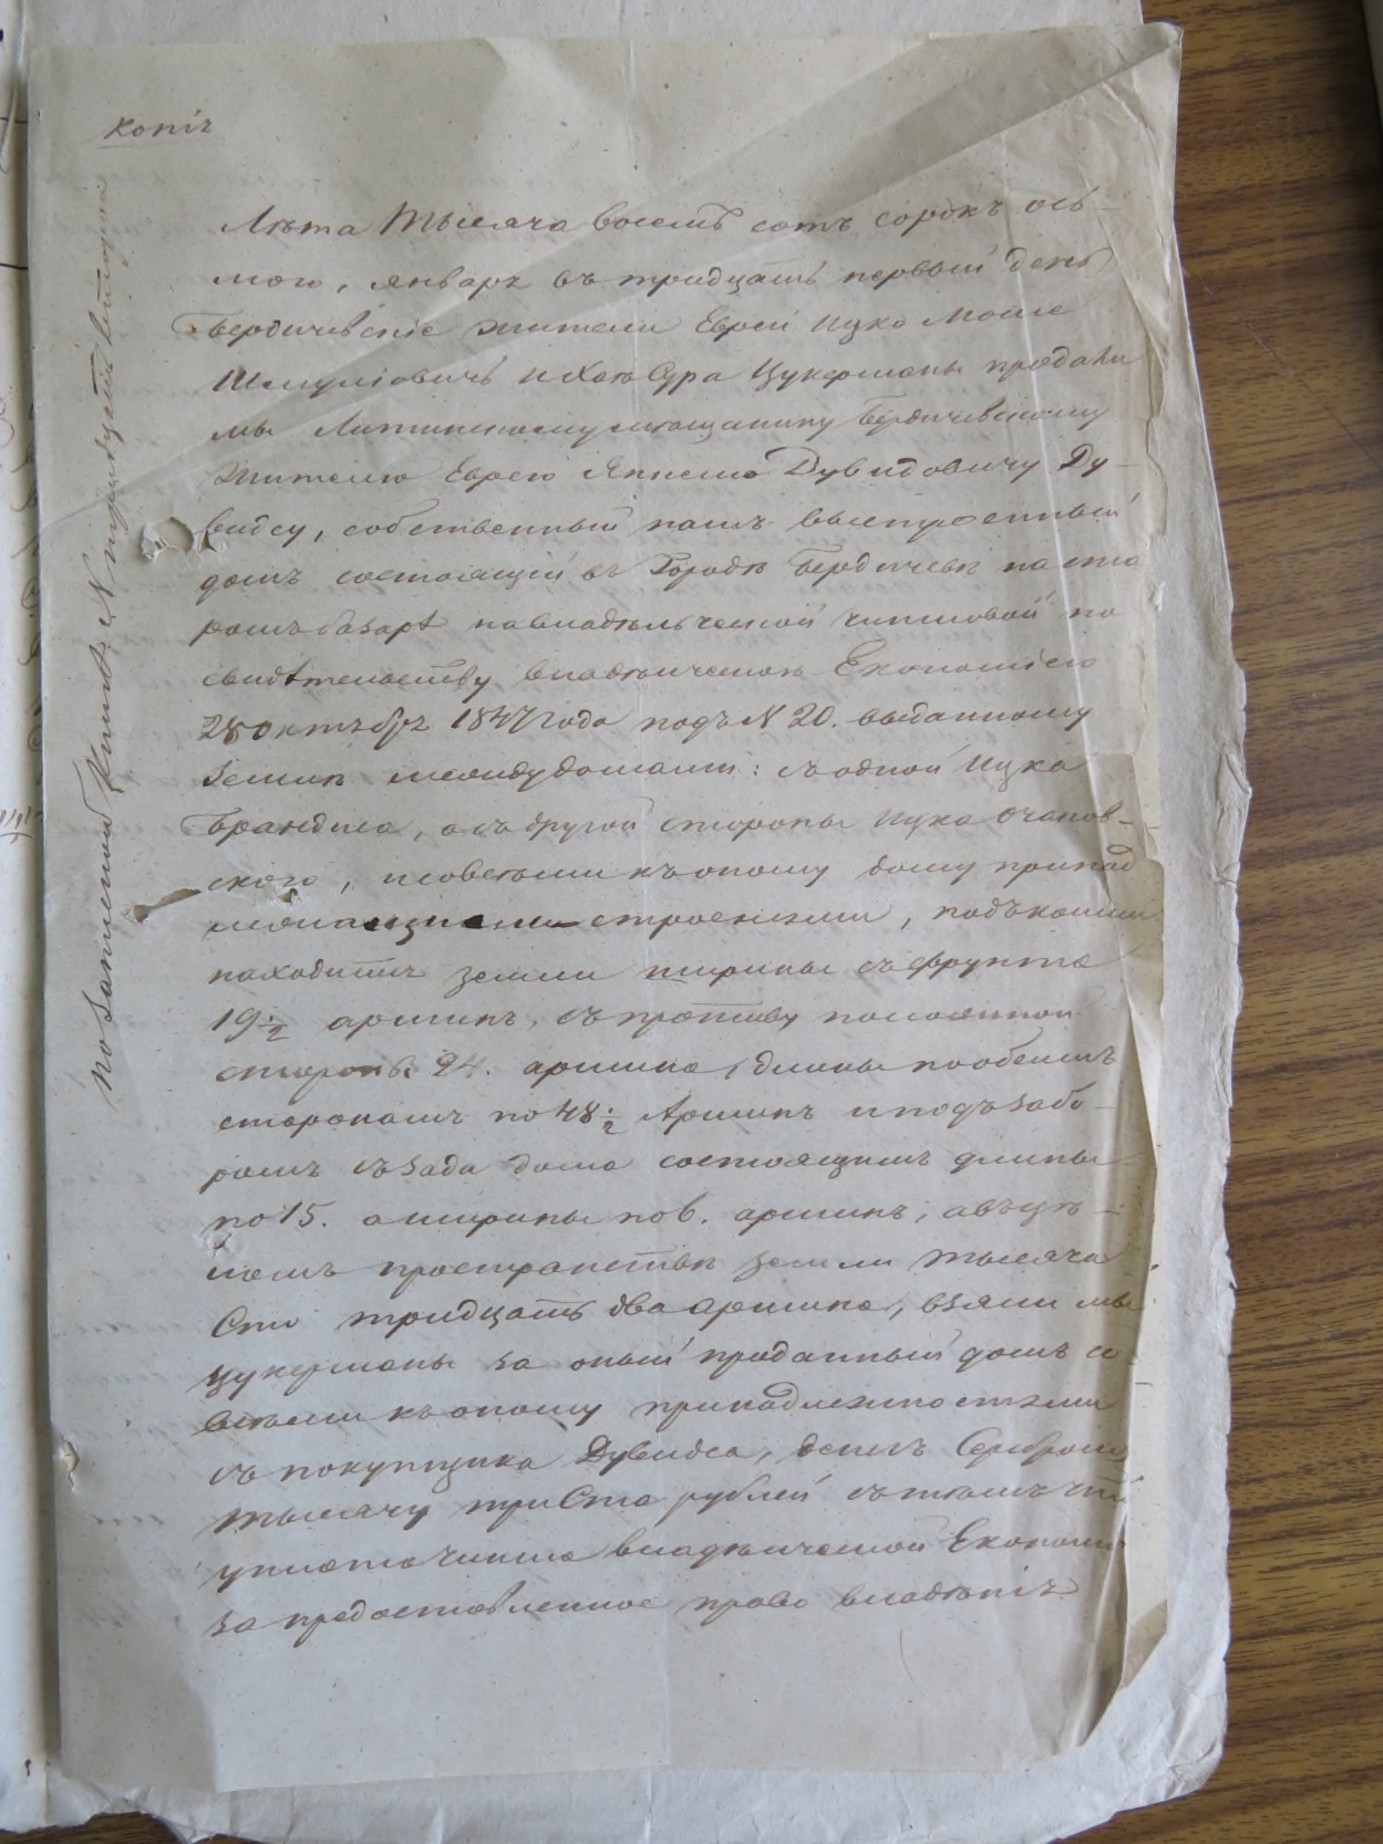 Копія
Лѣта Тысяча восемь сотъ сорокъ ось-
мого, января въ тридцать первый день
Бердичевскіе жители Евреи Ицко Моше
Шмуліовичъ и Хая Сура Цукерманы продали
мы Литинскому мѣщанину Бердичевскому
жителю Еврею Янкелю Дувидовичу Ду-
видсу, собственный нашъ выстроенный
домъ состоящій въ Городѣ Бердичевѣ на ста
ромъ базарѣ на владѣльческой чиншовой по
свидѣтельству владѣльческою Економіею
28 октября 1847 года подъ N 20. выданному
земли между домами: съ одной Ицка
Брандиса, а съ другой стороны Ицка Очаков-
ского, и со всѣми къ оному дому принад
лежащими строеніями, подъ коими
находится земли ширины съ фрунта
19 1/2 аршинъ, съ противу положной
стороны 24. аршина, длины по обеимъ
сторонамъ по 48 1/2 Аршинъ и подъ забо-
ромъ съ зади дома состоящимъ длины
по 15. а ширины по 6. аршинъ, а въ цѣ-
ломъ пространствѣ земли тысяча
Сто тридцать два аршина, взяли мы
Цукерманы за оный проданный домъ со
всѣми къ оному принадлежностями
съ покупщика Дувидса, денегъ Серебромъ
тысячу триста рублей съ тѣмъ что
уплата чинша владѣльческой Економіи
за предоставленное право владѣнія
По Записной Книгѣ N